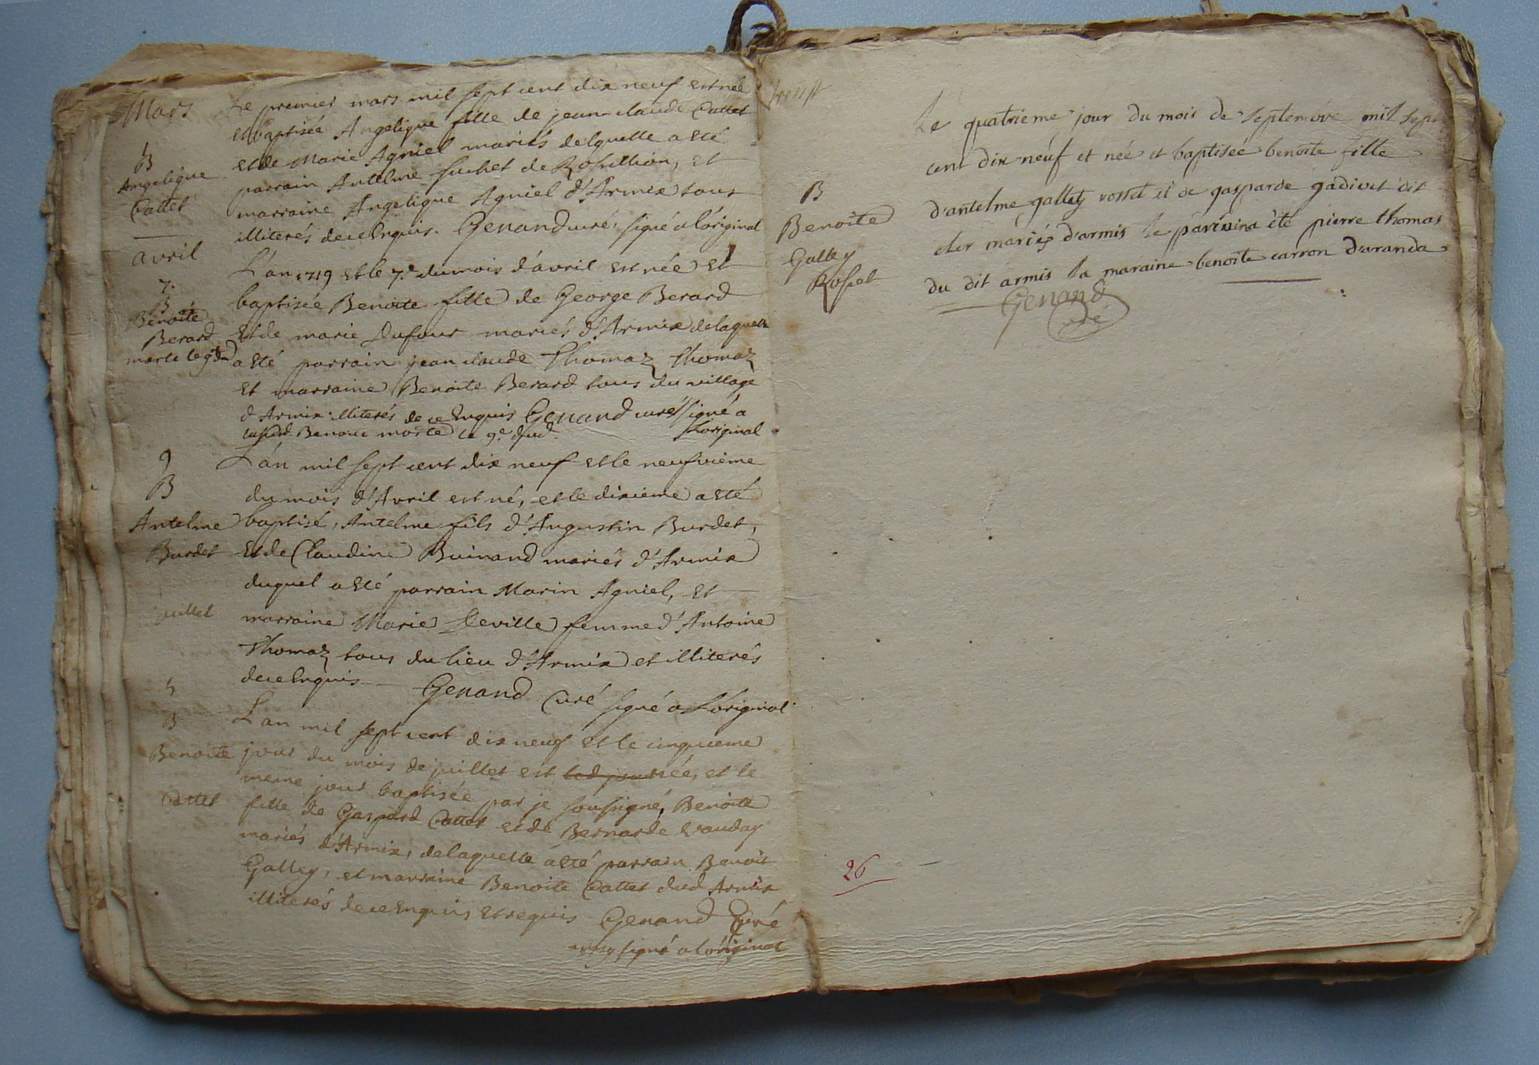 Mars
Le premier mars mil sept cent dix neuf est née
et baptisée Angelique fille de jean claude Cattet
B
et de Marie Agniel mariés delquelle a eté
Angelique
parrain Antelme suchet de Rosillion, et
Cattet
marraine Angelique Agniel d'Armix tous
illiterés de ce enquis. Genand curé, signé a l'original
avril
L'an 1719 et le 7.e du mois d'avril est née et
7.
B
baptisée Benoite fille de George Berard
Benoite
Berard
et de marie Dufour mariés d'Armix delaquelle
morte le 9.e
a eté parrain jean claude Thomaz Thomaz
et marraine Benoite Berard tous du village
d'Armix illiterés de ce enquis Genand curé signé a
l'original
Benoite morte le 9.e
9
L'an mil sept cent dix neuf et le neufvieme
B
du mois d'Avril est né, et le dixieme a eté
Antelme
baptisé, Antelme fils d'Augustin Burdet,
Burdet
et de Claudine Buinand mariés d'Armix
duquel a eté parrain Marin Agniel, et
juillet
marraine Marie Deville femme d'Antoine
Thomaz tous du lieu d'Armix et illiterés
de ce enquis Genand Curé signé a L'original
5
B
L'an mil sept cent dix neuf et le cinquieme
Benoite
jour du mois de juillet est née, et le
meme jour baptisée par je soussigné, Benoite
Cattet
fille de Gaspard Cattet et de Bernarde Vauday
mariés d'Armix, delaquelle a eté parrain Benoit
Galley, et marraine Benoite Cattet dud Armix
illiterés de ce enquis et requis Genand Curé
signé a l'original
Le quatrieme jour du mois de septembre mil sept
cent dix neuf et née et baptisée benoite fille
B
d'antelme galley rosset et de gasparde gadivet dit
Benoite
cler mariés d'armis le parrain a été pierre thomas
Galley
Rosset
du dit armis la maraine benoite carron d'aranda
Genand
curé
26